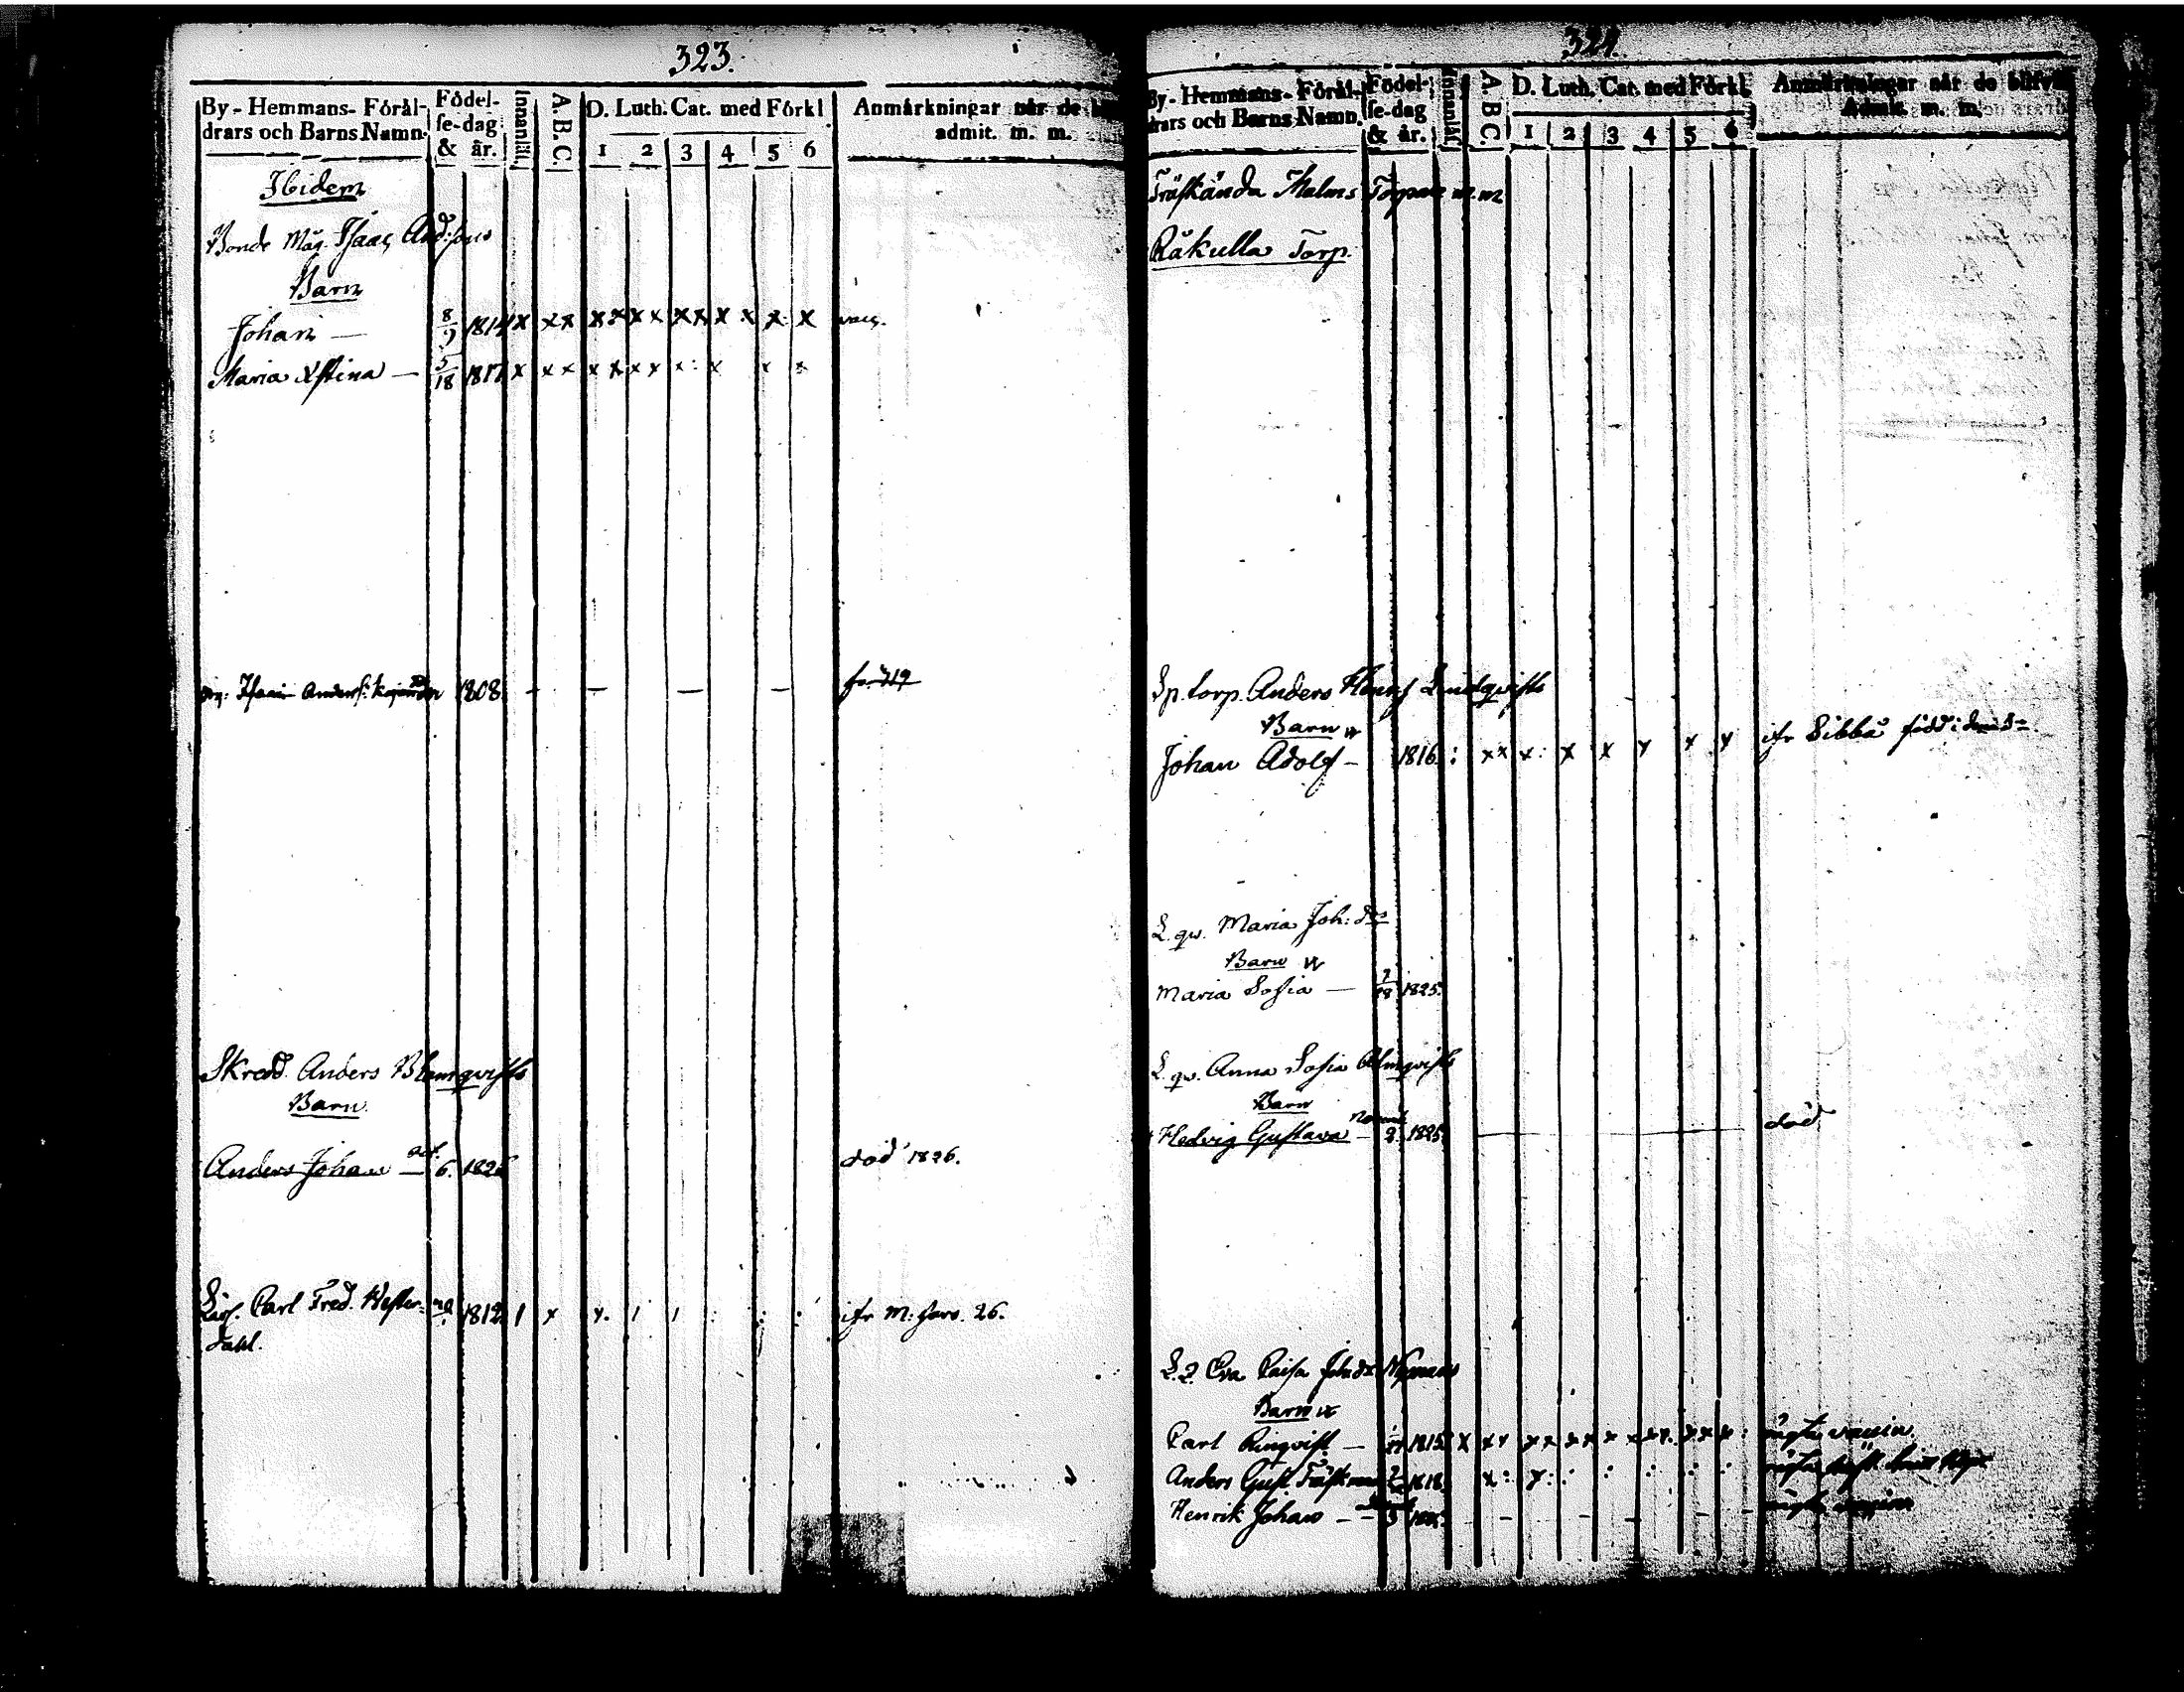 323.
By-Hemmans-Föräl-
drars och Barns Namn.
Födel-
se-dag
& år.
Innanläs.
A. B. C.
D. Luth. Cat. med Förkl.
1 2 3 4 5 6
Anmärkningar når de
admit. m. m.
Ibidem
Bonde Måg. Isaac And:sons
Barn
Johan — 8/9 1814 x xx x x x x x x x x x x vac.
Maria Xstina — 5/18 1817 x x x x x x x x : x x x
1808 — — — —
Skredd. Anders Blomqvists
Barn
Anders Johan — oct. 6. 1826 död 1826.
Lärl. Carl Fred. Wester- 1812 1 x x. 1 1 : : : ifr M: Jara. 26.
dahl.
324.
By-Hemmans-Föräl-
drars och Barns Namn.
Födel-
se-dag
& år.
Innanläs.
A. B. C.
D. Luth. Cat. med Förkl.
1 2 3 4 5 6
Anmärkningar når de blifvit
Admit. m. m.
Träskända Malms Torpare m. m
Råkulla Torp.
Sp. torp. Anders Lindqvists
Barn
Johan Adolf — 1816 : x x x : x x x x x ifr Sibbå född i
L. qv. Maria Joh: drs
Barn
Maria Sofia — 1825.
L. qv. Anna Sofia Almqvists
Barn
Hedvig Gustava — Novemb. 2. 1825 död
L. Q. Eva Caisa Joh: dr Nymans
Barn
Carl Ringvist — 1815 x x x x x x x x x x x x x x :
Anders Gust. 1818 x : x : : : : : :
Henrik Johan — — — — — — —